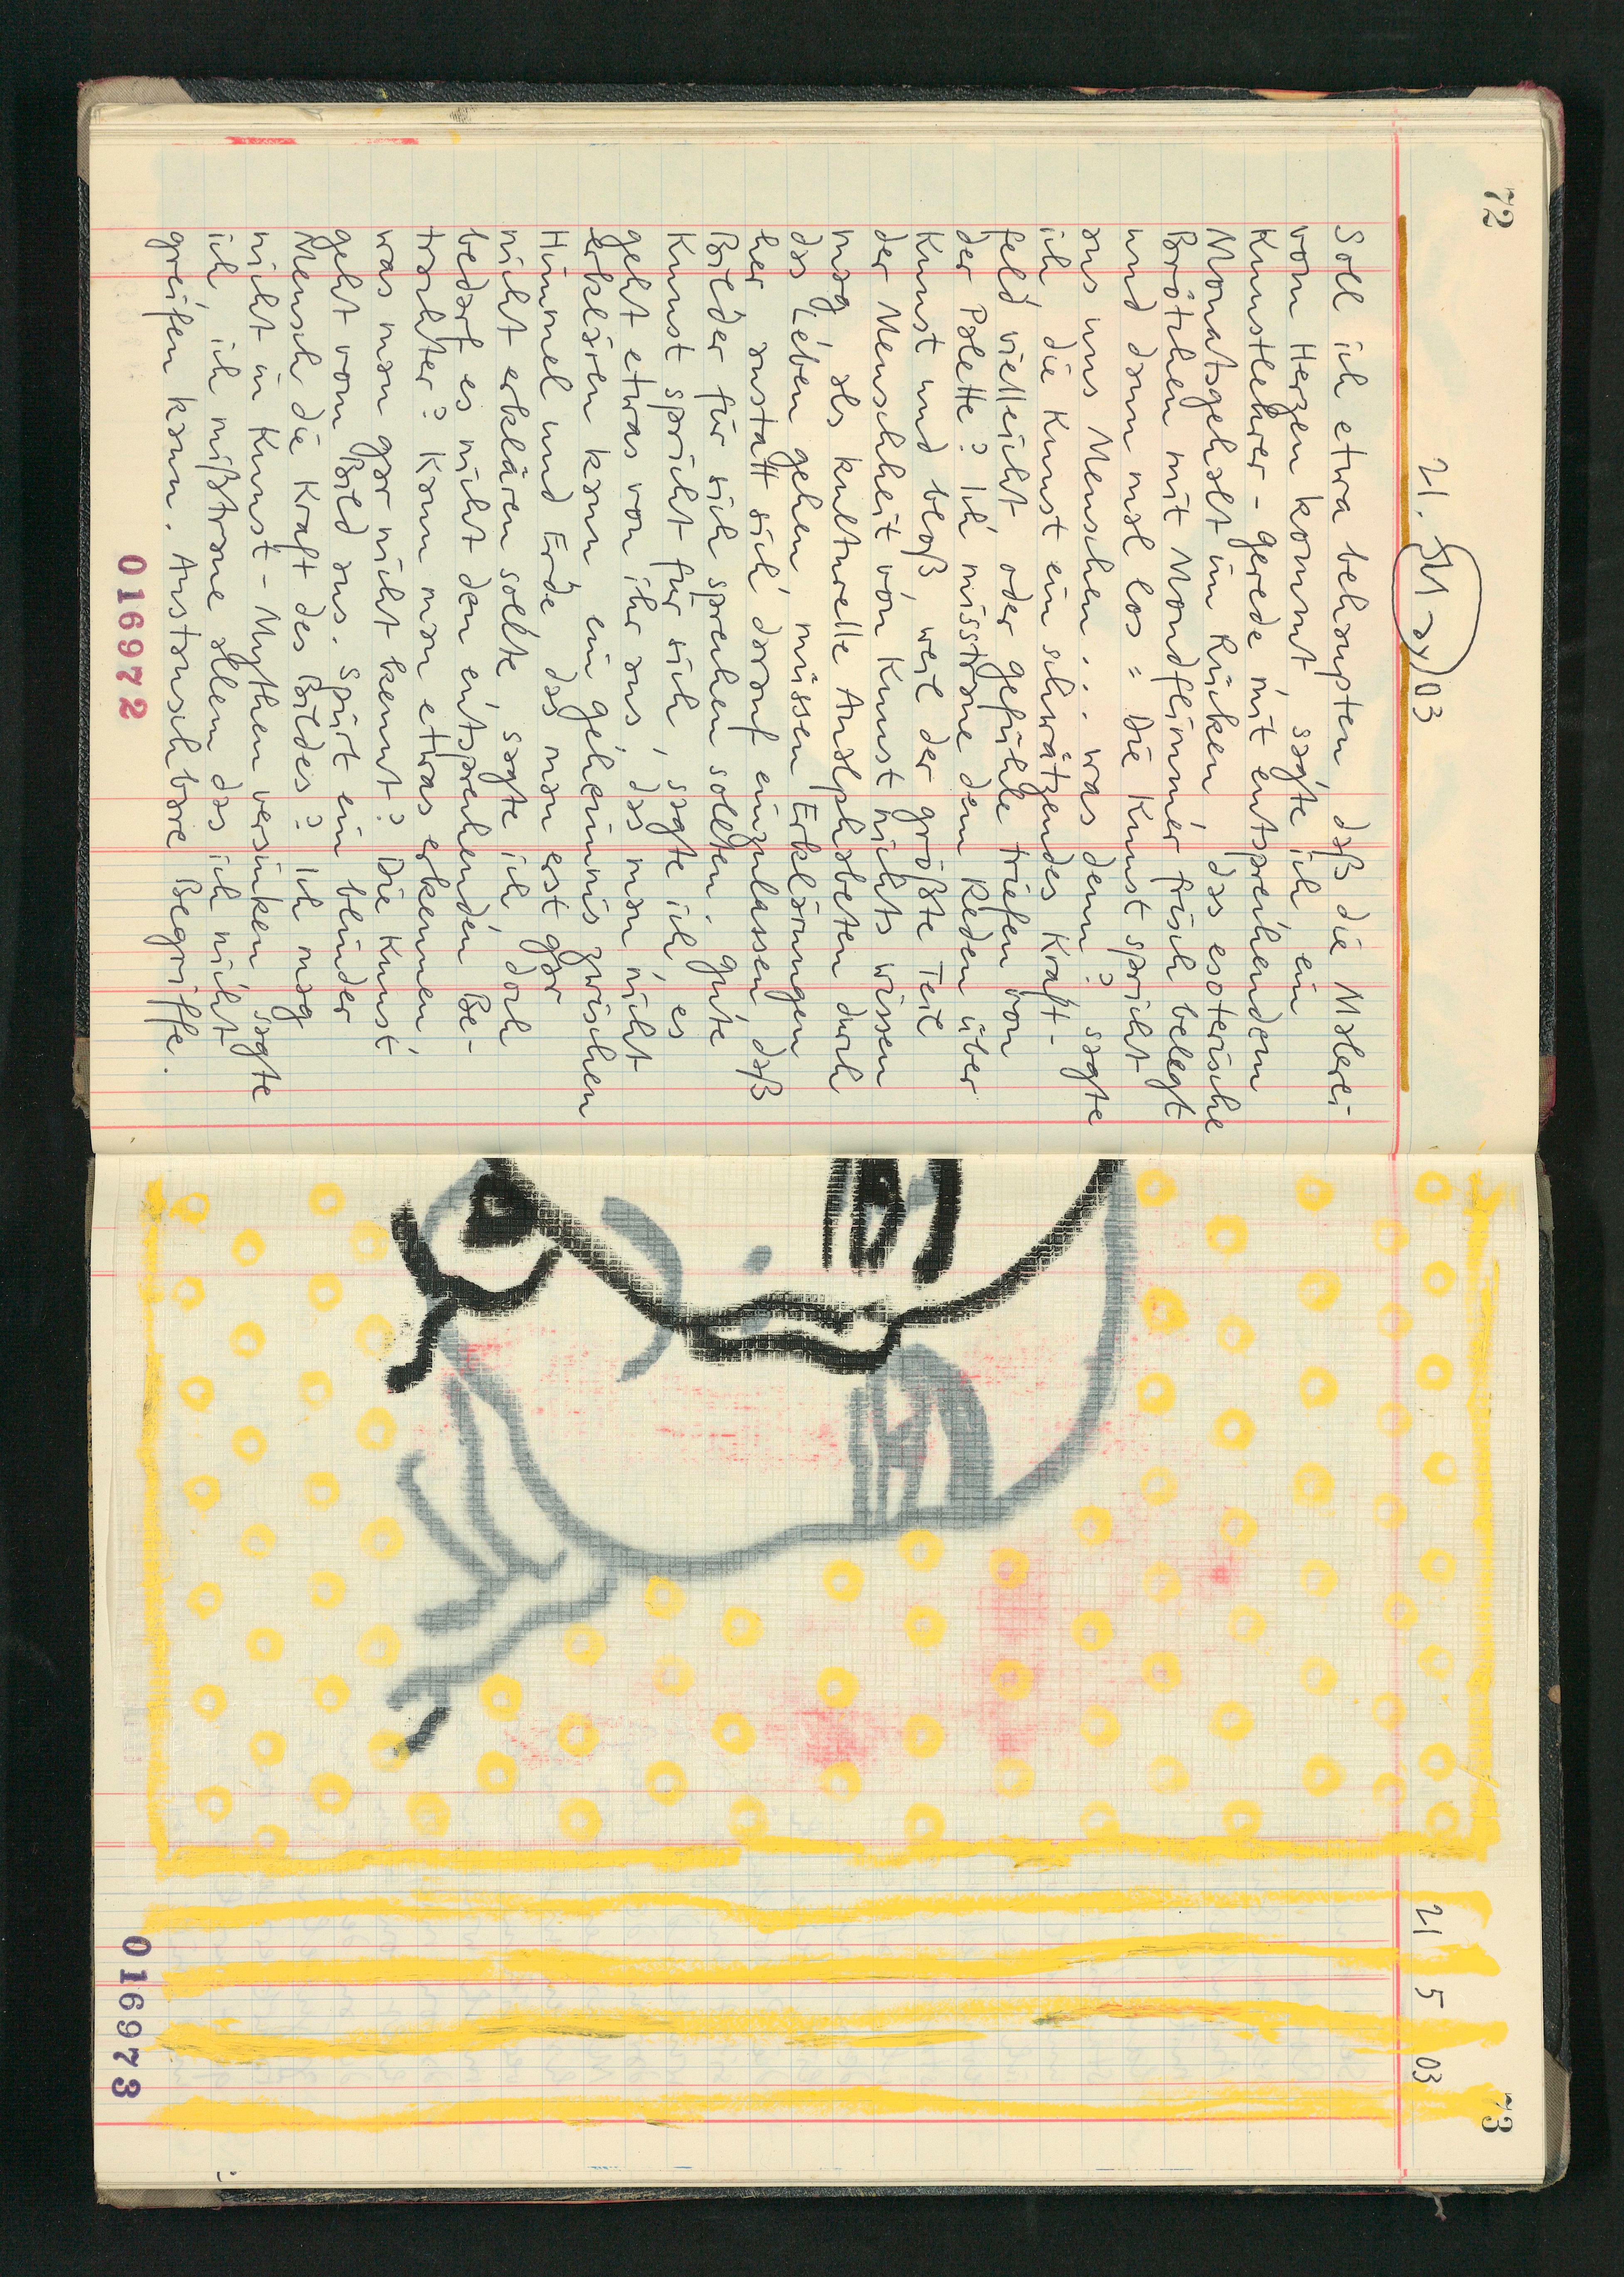 72
21. May 03
Soll ich etwa behaupten, daß die Malerei
vom Herzen kommt, sagte ich, ein
Kunstlehrer-gerede mit entsprechendem
Monatsgehalt im Rücken, das esoterische
Brötchen mit Mondflimmer frisch belegt
und dann mal los: Die Kunst spricht
aus uns Menschen... was denn? sagte
ich, die Kunst ein schwätzendes Kraft-
feld vielleicht oder gefühle triefen von
der Palette? Ich misstraue dem Reden über
Kunst und bloß, weil der größte Teil
der Menschheit von Kunst nichts wissen
mag, als kulturelle Analphabeten durch
das Leben gehen, müssen Erklärungen
her, anstatt sich darauf einzulassen, daß
Bilder für sich sprechen sollten. gute
Kunst spricht für sich, sagte ich, es
geht etwas von ihr aus, das man nicht
erklären kann, ein geheimnis zwischen
Himmel und Erde, das man erst gar
nicht erklären sollte, sagte ich, doch
bedarf es nicht den entsprechenden Be-
trachter? Kann man etwas erkennen
was man gar nicht kennt? Die Kunst
geht vom Bild aus. Spürt ein blinder
Mensch die Kraft des Bildes? Ich mag
nicht in Kunst-Mythen versinken, sagte
ich, ich mißtraue allem das ich nicht
greifen kann. Austauschbare Begriffe.
016972
73
21 5 03
016973